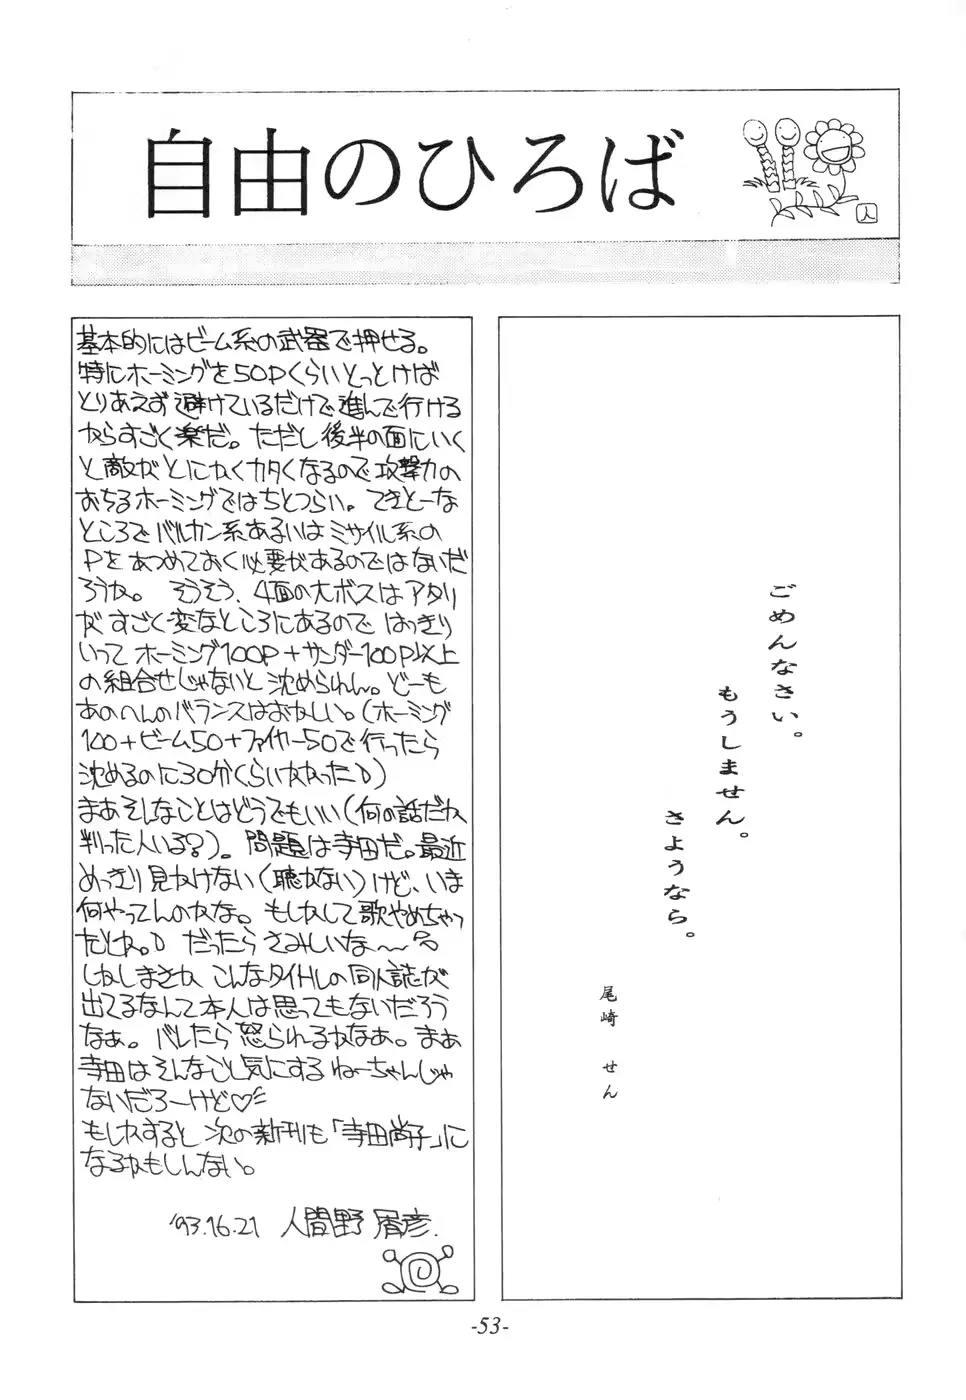 自由のひろば
人
基本的にはビーム系の武器で押せる。
特にホーミングを50Pくらいとっとけば
とりあえず避けているだけで進んで行ける
からすごく楽だ。ただし後半の面にいく
と敵がとにかくカタくなるので攻撃力の
おちるホーミングではちとつらい。てきとーな
ところでバルカン系あるいはミサイル系の
Pをあつめておく必要があるのではないだ
ろうか。そうそう、4面の大ボスはアタリ
がすごく変なところにあるのではっきり
いってホーミング100P+サンダー100P以上
の組合せじゃないと沈められん。どーも
あのへんのバランスはおかしい。(ホーミング
100+ビーム50+ファイヤー50で行ったら
沈めるのに30分くらいかかった)
まあそんなことはどうでもいい(何の話だか
判った人いる?)。問題は寺田だ。最近
めっきり見かけない(聴かない)けど、いま
何やってんのかな。もしかして歌やめちゃっ
たとか。だったらさみしいな〜
しかしまさか、こんなタイトルの同人誌が
出てるなんて本人は思ってもないだろう
なぁ。バレたら怒られるかなあ。まぁ
寺田はそんなこと気にするねーちゃんじゃ
ないだろーけど♡
もしかすると次の新刊も「寺田尚子」に
なるかもしんない。
'93.16.21 人間野 屑彦.
ごめんなさい。
もうしません。
さようなら。
尾崎 せん
-53-